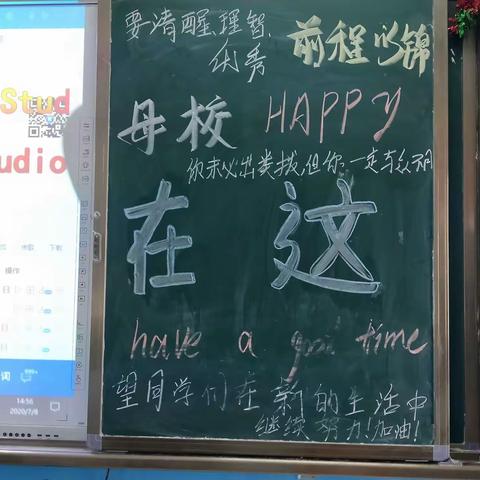 要清醒理智
优秀
前程似锦
母校 HAPPY
你未必出类拔,但你一定与众不同
在 这
have a good time
望同学们在新的生活中
继续努力!加油!
Stud
udio
下载
操作
词
999+
14:56
2020/7/8